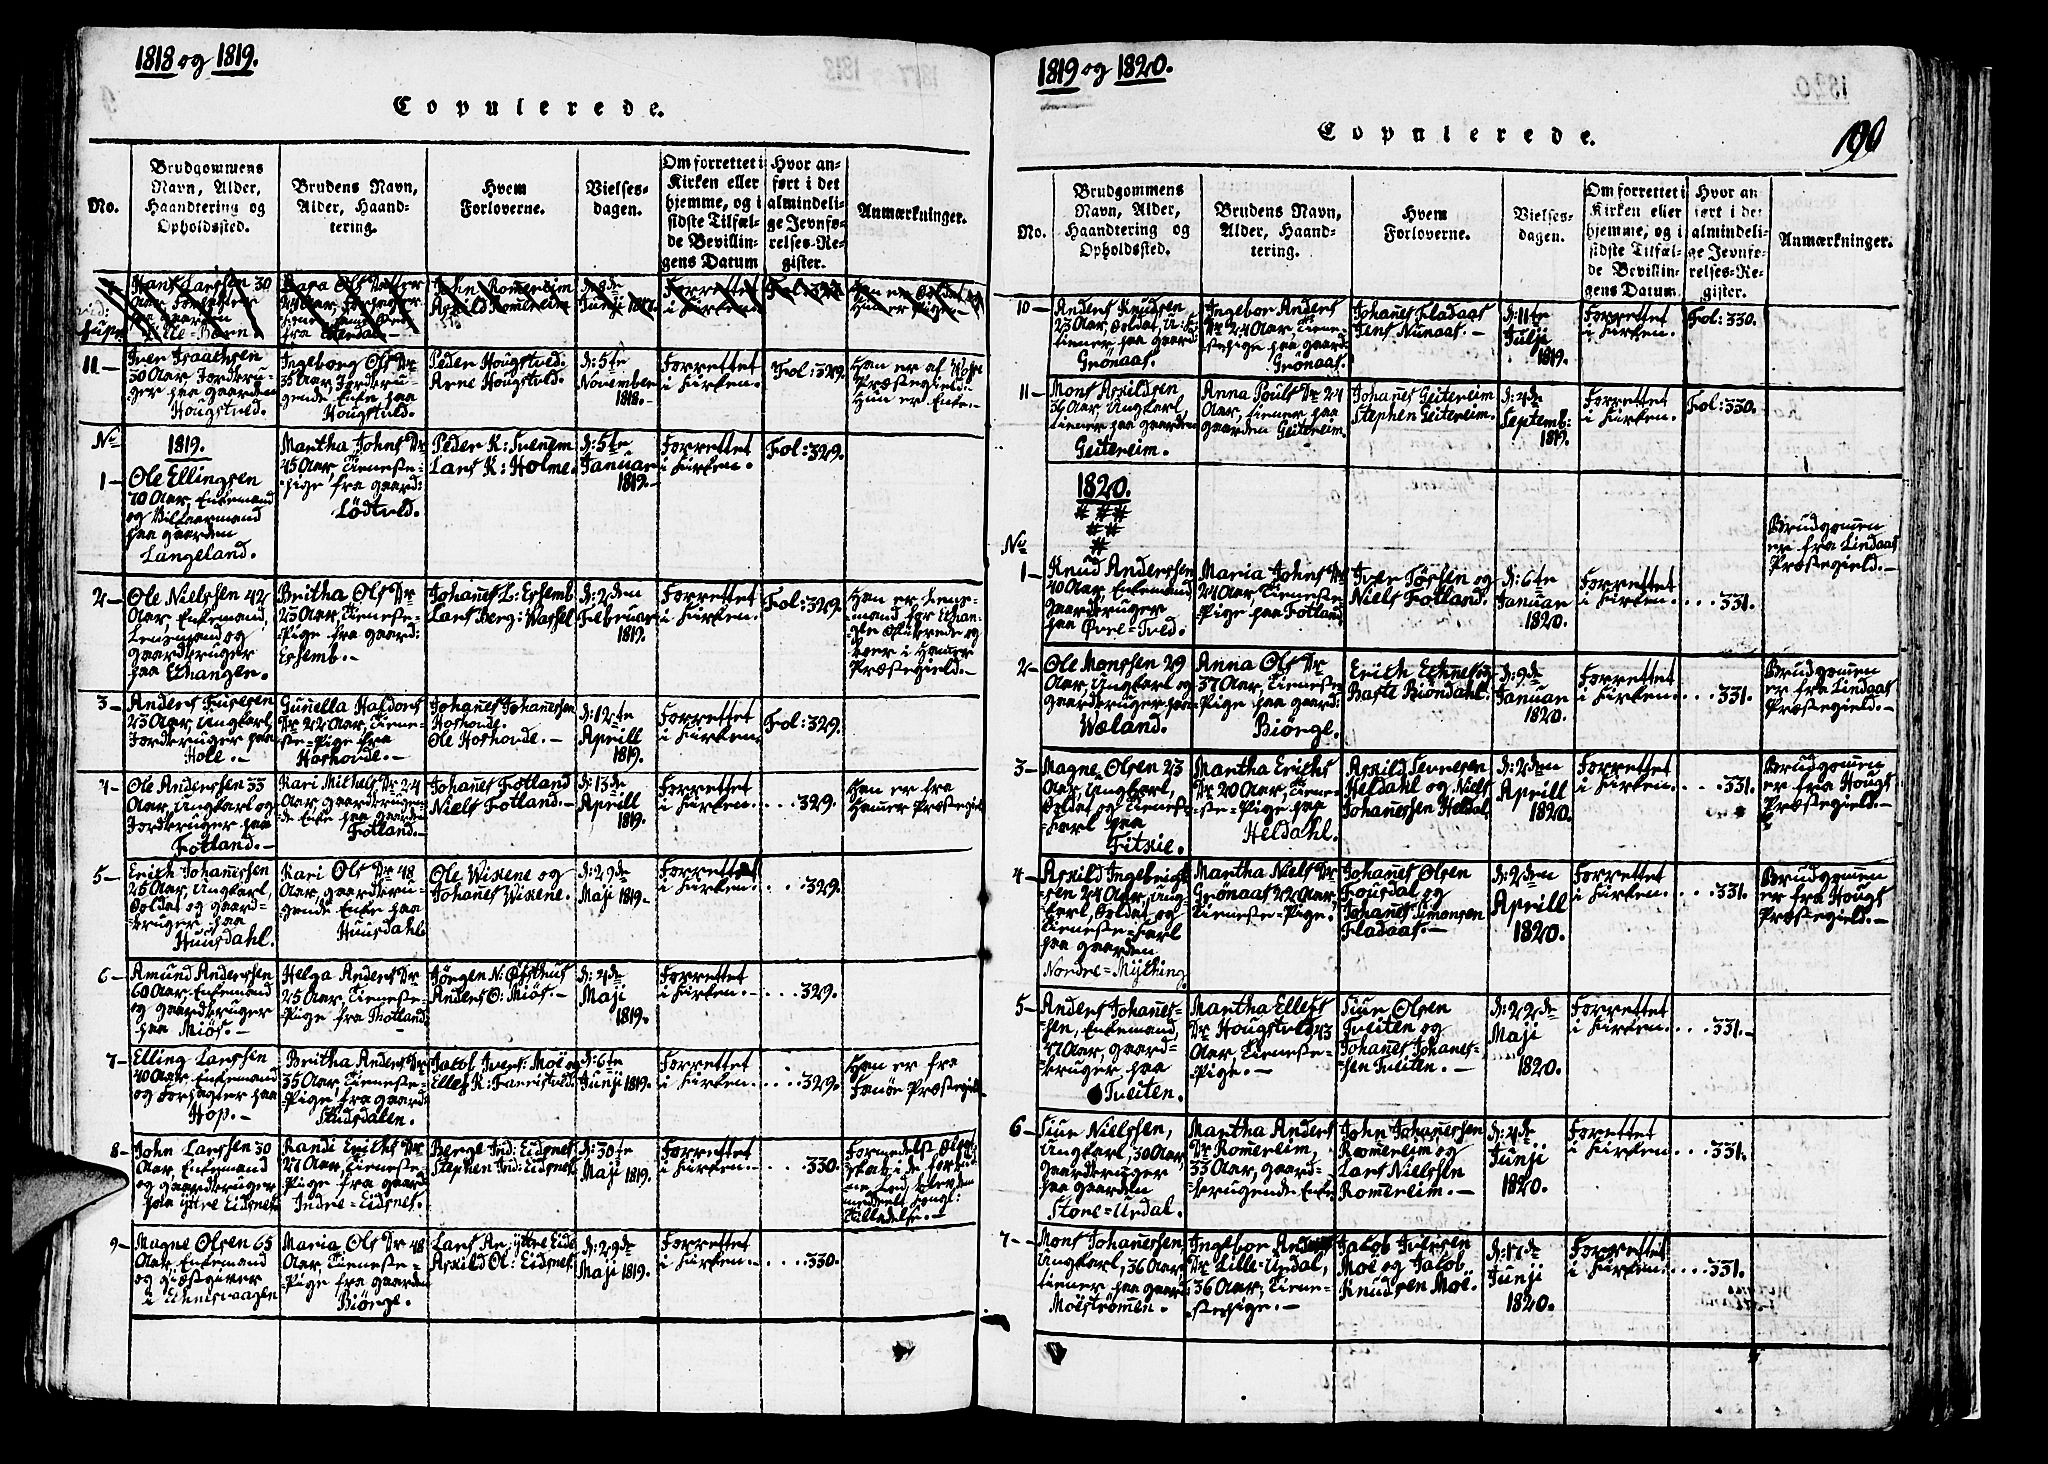 1818 og 1819.
Copulerede.
No.
Brudgommens
Navn, Alder,
Haandtering og
Opholdssted.
Brudens Navn,
Alder, Haand-
tering.
Hvem
Forloverne.
Vielses-
dagen.
Om forrettet i
Kirken eller
hjemme, og i
sidste Tilfæl-
de Bevillin-
gens Datum
Hvor an-
ført i det
almindeli-
ge Jevnfø-
relses-Re-
gister.
Anmærkninger.
Hans Larssen 30
Aar
paa Gaarden
Lille-Børn.
Ols Datter
fra
John Romereim
Arnild Romereim
Junji
Forrettet
i Kirken.
Han er Soldat og
Hun er Pige.
11 -
Iver Isaachsen
30 Aar, Jordbru-
ger paa Gaarden
Hougstvld.
Ingeborg Ols Dr
35 Aar, Jordbru-
gende Enke paa
Hougstvld.
Peder Hougstvld.
Arne Hougstvld.
D: 5te
November
1818.-
Forrettet
i Kirken.
Fol: 329.
Han er af
Præstegield.
Hun er Enke.-
No
1819.
1 -
Ole Ellingsen
70 Aar, Enkemand
og
paa Gaarden
Langeland.
Martha Johns Dr
25 Aar, Tieneste-
pige fra Gaard:
Lødtvld.
Peder K: Svenem
Lars K: Holme.
D: 5te
Januar
1819.-
Forrettet
i Kirken.
Fol: 329.
2 -
Ole Nielssen 42
Aar, Enkemand,
Lensmand og
Gaardbruger
paa Echanger.
Britha Ols Dr
23 Aar, Tieneste-
Pige fra Gaard:
Echemb.-
Johañes L: Echemb
Lars Berg: Wassel
D: 2den
Februar
1819.
Forrettet
i Kirken.
Fol: 329.
Han er Lens-
mand for Echan-
ger Skibrede og
boer i Hammer
Præstegield.-
3 -
Anders
23 Aar, Ungkarl,
Jordbruger paa
Hole.-
Guñella Haldors
Dr 22 Aar, Tiene-
ste-Pige fra
Hoshovde.-
Johañes Johanessen
Hoshovde.
Ole Hoshovde.-
D: 12te
Aprill
1819.
Forrettet
i Kirken.
Fol: 329.
4 -
Ole Anderssen 33
Aar, Ungkarl og
Jordbruger paa
Fotland.-
Kari Mikkels Dr 24
Aar, Gaardbrugen-
de Enke paa Gaarden
Fotland.-
Johañes Fotland
Niels Fotland.-
D: 13de
Aprill
1819.
Forrettet
i Kirken.
329.
Han er fra
Hammer Præstegield
5 -
Erich Johañessen
25 Aar, Ungkarl,
Soldat og Gaard-
bruger paa
Huusdahl.
Kari Ols Dr 48
Aar, Gaardbru-
gende Enke paa
Huusdahl.
Ole Wixene og
Johañes Wixene.
D: 29de
Maji 1819.-
Forrettet
i Kirken.
329.
6 -
Amund Anderssen
60 Aar, Enkemand
og Gaardbruger
paa Miøs.-
Helga Anders Dr
25 Aar, Tieneste-
Pige fra Thotland.
Jørgen N: Østhus
Anders O: Miøs.-
D: 2de
Maji
1819.
Forrettet
i Kirken.
329.
7 -
Elling Larssen
40 Aar, Enkemand
og Forpagter paa
Hop.-
Britha Anders Dr
35 Aar, Tieneste-
Pige fra Gaard:
Studsdalen.
Jacob Ivers: Moe og
Elles K: Farestvld.
D: 6te
Junji 1819.
Forrettet
i Kirken.
329.
Han er fra
Fanøe Præstegield
8 -
John Larssen 30
Aar, Enkemand
og Gaardbruger
paa Yttre Eidsnes.
Randi Erichs Dr
27 Aar, Tieneste-
Pige fra Gaard:
Indre-Eidsnes.
Berge Ind: Eidsnes
Stephen Ind: Eidsnes
D: 30te
Maji 1819.
Forrettet
i Kirken.
330.
Kongl:
Tilladelse.-
9 -
Magne Olsen 65
Aar, Enkemand
og Giæstgiver
i Echnesvaagen
Maria Ols Dr 48
Aar, Tieneste-
Pige fra Gaarden
Biørge.
Lars An: Yttre Eids
Arnild O: Eidsnes.
D: 29de
Maji 1819.
Forrettet
i Kirken.
330.
1819 og 1820.
Copulerede.
190
No.
Brudgommens
Navn, Alder,
Haandtering og
Opholdssted.
Brudens Navn,
Alder, Haand-
tering.
Hvem
Forloverne.
Vielses-
dagen.
Om forrettet i
Kirken eller
hjemme, og i
sidste Tilfæl-
de Bevillin-
gens Datum.
Hvor an
ført i det
almindeli-
ge Jevnfø-
relses-Re-
gister.
Anmærkninger.
10 -
Anders Knudsen
23 Aar, Soldat,
tiener paa Gaard:
Grønaas.
Ingebor Anders
Dr 24 Aar, Tiene-
stepige paa Gaard:
Grønaas.
Johañes Fladaas
Jens Nunaas.-
D: 11te
Julji
1819.
Forrettet
i Kirken.
Fol: 330.
11 -
Mons Arnildsen
34 Aar, Ungkarl,
tiener paa Gaarden
Geitereim.
Anna Pouls Dr 24
Aar, tiener paa
Gaarden Geitereim.
Johañes Geitereim
Stephen Geitereim.
D: 4de
Septemb:
1819.
Forrettet
i Kirken.
Fol: 330.
1820.
No
1 -
Knud Anderssen
40 Aar, Enkemand
Gaardbruger
paa Øvre-Tvld.
Maria Johns Dr
24 Aar, Tieneste-
Pige paa Fotland
Iver Torsen og
Niels Fotland.
D: 6te
Januar
1820.
Forrettet
i Kirken.
331.
Brudgomen
er fra Lindaas
Præstegield.-
2 -
Ole Monssen 29
Aar, Ungkarl og
Gaardbruger paa
Wæland.
Anna Ols Dr
37 Aar, Tieneste-
Pige paa Gaard:
Biørge.
Erich Echnes og
Baste Biøndahl.
D: 9de
Januar
1820.
Forrettet
i Kirken.
331.
Brudgomen
er fra Lindaas
Præstegield.-
3 -
Magne Olsen 23
Aar, Ungkarl,
Soldat og Tieneste-
Karl paa
Fitxie.
Martha Erichs
Dr 20 Aar, Tiene-
ste-Pige paa
Heldahl.
Arnild Iversen
Heldahl og Niels
Johañessen Heldal.
D: 2den
Aprill
1820.
Forrettet
i Kirken.
331.
Brudgomen
er fra Hougs
Præstegield.-
4 -
Arnild Ingebrigt-
sen 24 Aar, Ung-
karl, Soldat og
Tieneste-Karl
paa Gaarden
Nordre-Myhing.
Martha Niels Dr
Grønaas 22 Aar,
Tieneste-Pige.
Johañes Olsen
Fousdal og
Johañes Simonsen
Fladaas.-
D: 2den
Aprill
1820.
Forrettet
i Kirken.
331.
Brudgomen
er fra Hougs
Præstegield.-
5 -
Anders Johañes-
sen, Enkemand
47 Aar, Gaard-
bruger paa
Tveiten.
Martha Elless
Dr Hougstvld 43
Aar, Tieneste-
Pige.-
Siur Olsen
Tveiten og
Johañes Johanes-
sen Tveiten.-
D: 22de
Maji
1820.
Forrettet
i Kirken.
331.-
6 -
Siur Nielssen,
Ungkarl, 30 Aar,
Gaardbruger
paa Gaarden
Store-Urdal.
Martha Anders
Dr Romereim,
33 Aar, Gaard-
brugende Enke
John Johañessen
Romereim og
Lars Nielssen
Romereim.-
D: 4de
Junji
1820.
Forrettet
i Kirken.
331.
7 -
Mons Johañessen,
Ungkarl, 36 Aar
tiener paa Gaard:
Moestrømen.
Ingebor Anders
Dr Lille-Urdal,
36 Aar, Tiene-
stepige.-
Jacob Iversen
Moe og Jacob
Knudsen Moe.
D: 17de
Junji
1820.
Forrettet
i Kirken.
331.